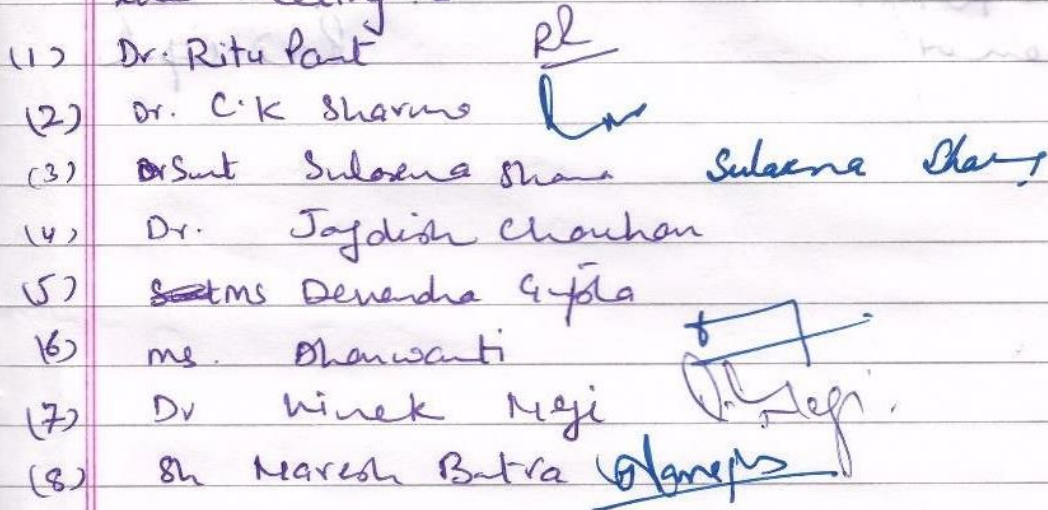 (1) Dr. Ritu Pant
(2) Dr. C.K Sharma
(3) Smt Sulaxna Sharma Sulaxna Sharma
(4) Dr. Jagdish Chauhan
(5) Ms Devendra Gupta
(6) Ms. Dhanwanti
(7) Dr Vivek Negi V. Negi.
(8) Sh Naresh Batra